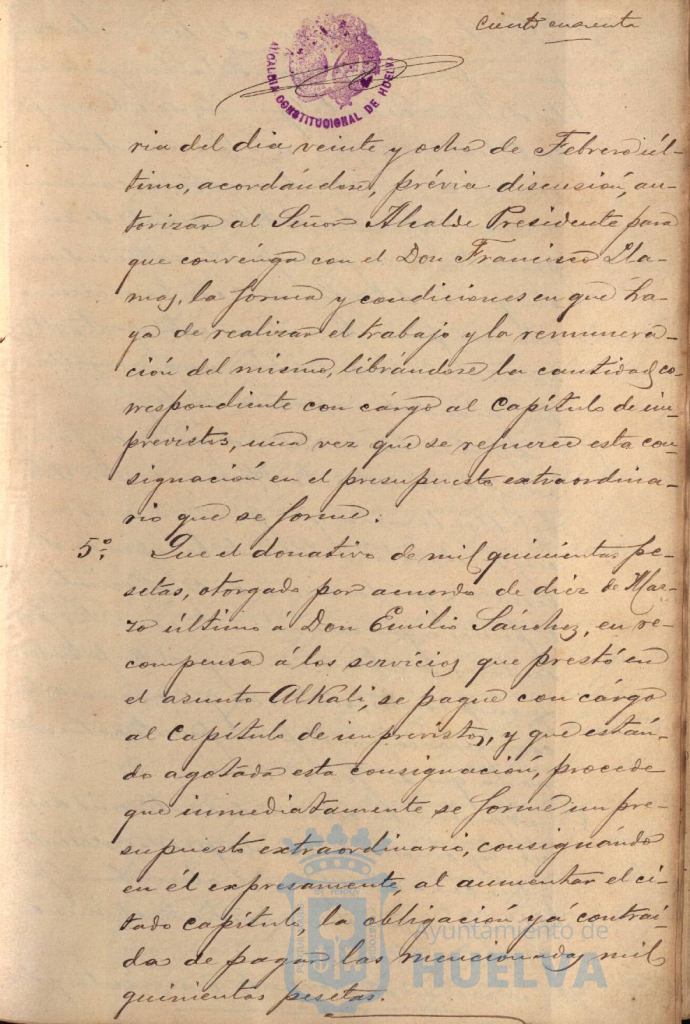 Ciento cuarenta
ALCALDIA CONSTITUCIONAL DE HUELVA
ria del dia veinte y ocho de Febrero úl-
timo, acordándose, prévia discusión, au-
torizar al Señor Alcalde Presidente para
que convenga con el Don Francisco Lla-
mas, la forma y condiciones en que ha-
ya de realizar el trabajo y la remunera-
ción del mismo, librándose la cantidad co-
rrespondiente con cárgo al capítulo de im-
previstos, una vez que se refuerce esta con-
signación en el presupuesto extraordina-
rio que se forme.
5º. Que el donativo de mil quinientas pe-
setas, otorgado por acuerdo de diez de Mar-
zo último á Don Emilio Sánchez, en re-
compensa á los servicios que prestó en
el asunto Alkali, se pague con cárgo
al Capítulo de imprevistos, y que están-
do agotada esta consignación, procede
que inmediatamente se forme un pre-
supuesto extraordinario, consignándo
en él expresamente, al aumentar el ci-
tado capítulo, la obligación yá contrai-
da de pagar las mencionadas mil
quinientas pesetas.
Ayuntamiento de
HUELVA